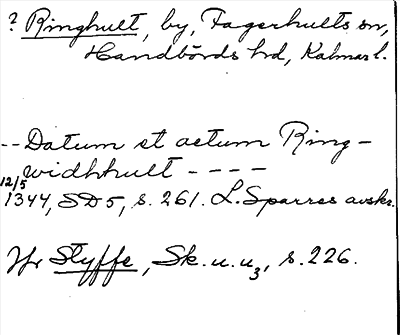 ? Ringhult, by, Fagerhults sn,
Handbörds hd, Kalmar l.
-- Datum et actum Ring-
widhhult - - - -
12/5 1344, SD 5, s. 261. L. Sparres avskr.
Jfr Styffe, Sk. u. u3, s. 226.